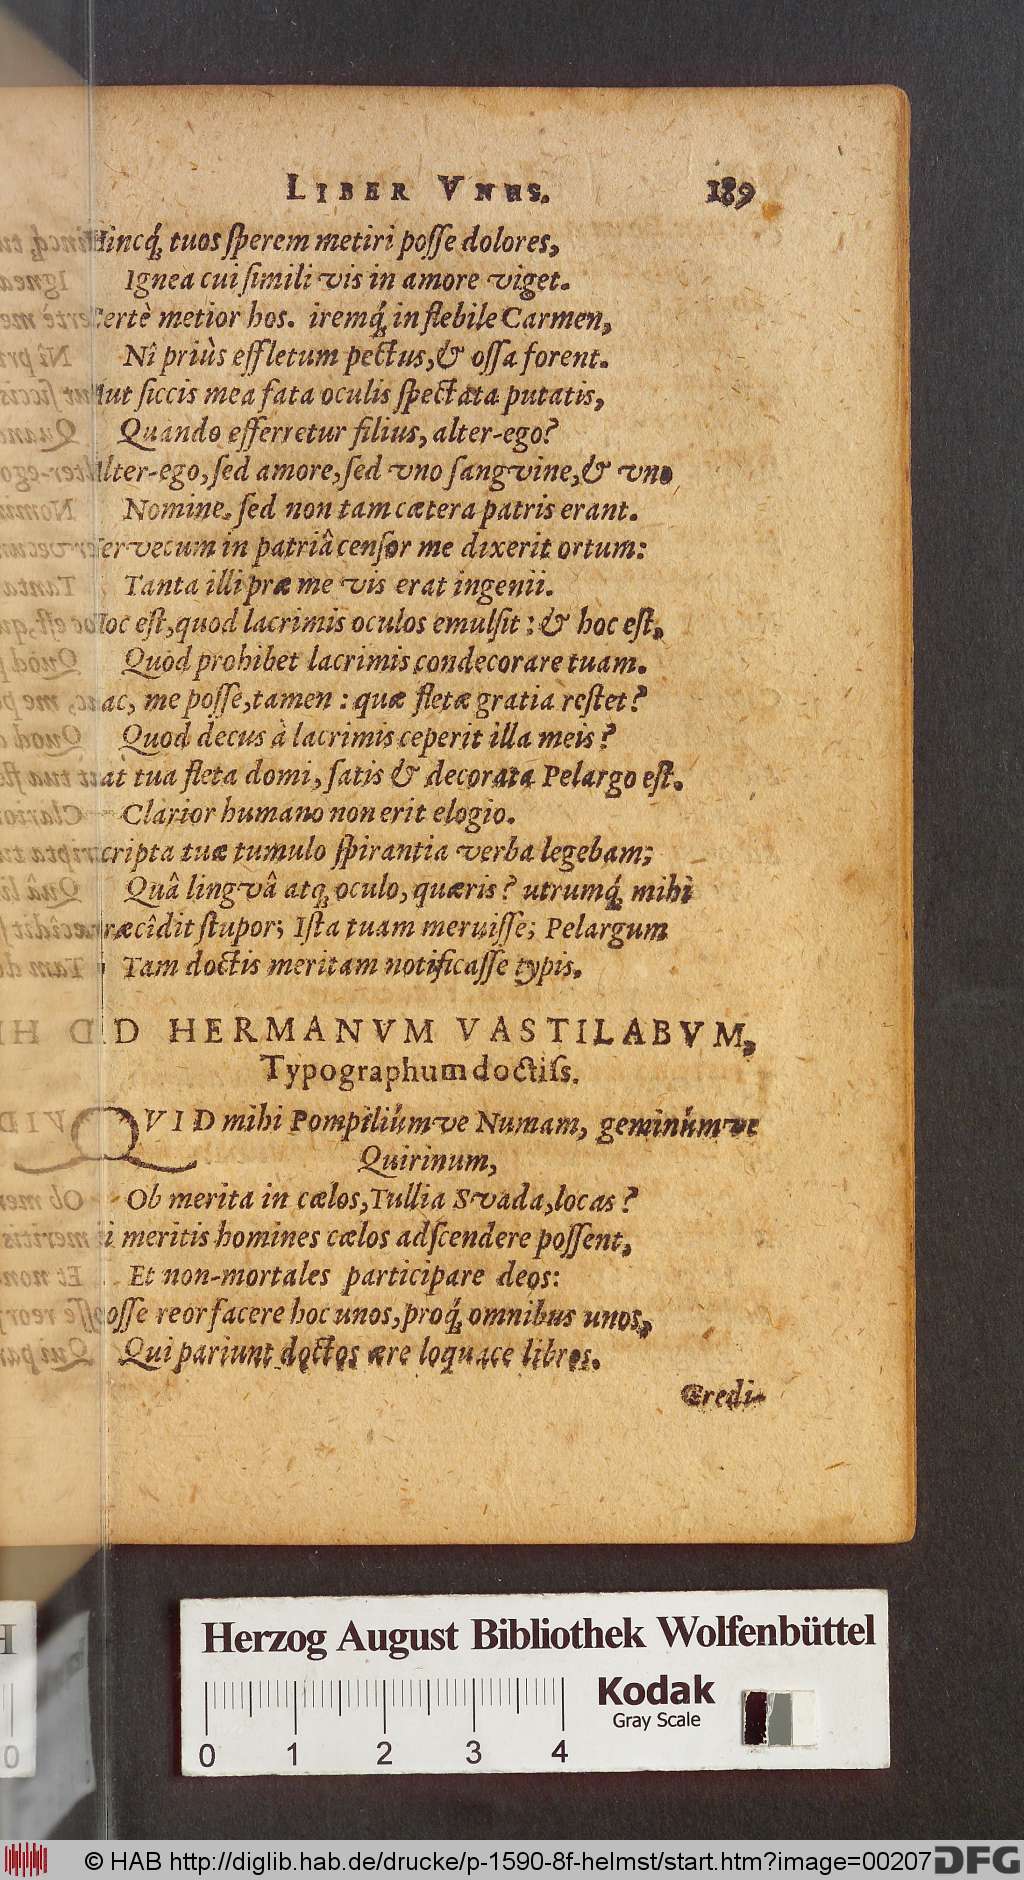 LIBER VNUS. 189
Hincq́; tuos sperem metiri posse dolores,
Ignea cui simili vis in amore viget.
Certè metior hos. iremq́; in flebile Carmen,
Nî priùs effletum pectus, & ossa forent.
Aut siccis mea fata oculis spectata putatis,
Quando efferretur filius, alter-ego?
Alter-ego, sed amore, sed vno sangvine, & vno
Nomine. sed non tam cætera patris erant.
Vervecum in patriâ censor me dixerit ortum:
Tanta illi præ me vis erat ingenii.
Hoc est, quod lacrimis oculos emulsit: & hoc est,
Quod prohibet lacrimis condecorare tuam.
ac, me posse, tamen: quæ fletæ gratia restet?
Quod decus à lacrimis ceperit illa meis?
at tua fleta domi, satis & decorata Pelargo est.
Clarior humano non erit elogio.
Scripta tuæ tumulo spirantia verba legebam;
Quâ lingvâ atq; oculo, quæris? utrumq́; mihi
Præcîdit stupor; Ista tuam meruisse; Pelargum
Tam doctis meritam notificasse typis.
D HERMANVM VASTILABVM,
Typographum doctiss.
QVID mihi Pompiliúmve Numam, geminúmve
Quirinum,
Ob merita in cælos, Tullia Svada, locas?
Si meritis homines cælos adscendere possent,
Et non-mortales participare deos:
Posse reor facere hoc unos, proq́; omnibus unos,
Qui pariunt doctos ære loquace libros.
Credi-
Herzog August Bibliothek Wolfenbüttel
Kodak
Gray Scale
0 1 2 3 4
© HAB http://diglib.hab.de/drucke/p-1590-8f-helmst/start.htm?image=00207
DFG